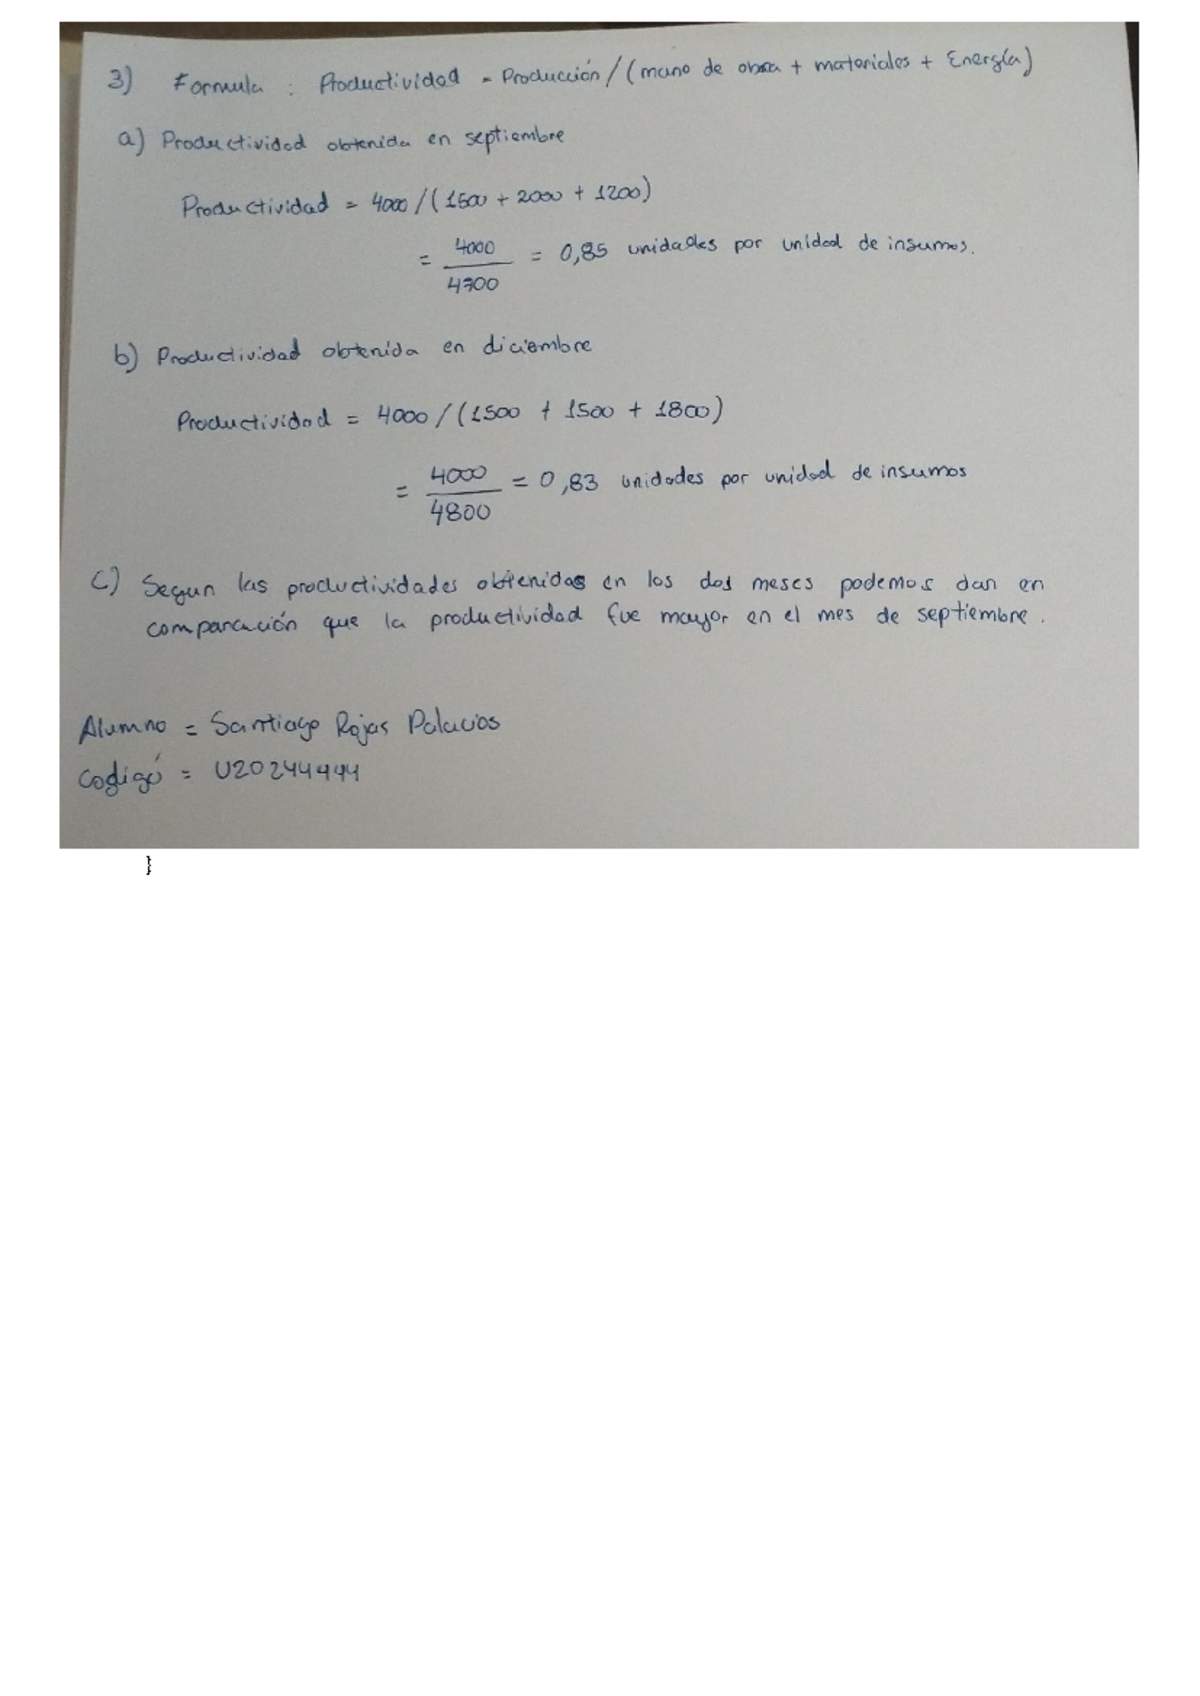 3) Formula : Productividad = Producción / (mano de obra + materiales + Energía)
a) Productividad obtenida en septiembre
Productividad = 4000 / (1500 + 2000 + 1200)
= 4000 / 4700 = 0,85 unidades por unidad de insumos.
b) Productividad obtenida en diciembre
Productividad = 4000 / (1500 + 1500 + 1800)
= 4000 / 4800 = 0,83 unidades por unidad de insumos
c) Segun las productividades obtenidas en los dos meses podemos dar en
comparación que la productividad fue mayor en el mes de septiembre.
Alumno = Santiago Rojas Palacios
Codigó = U20244444
}